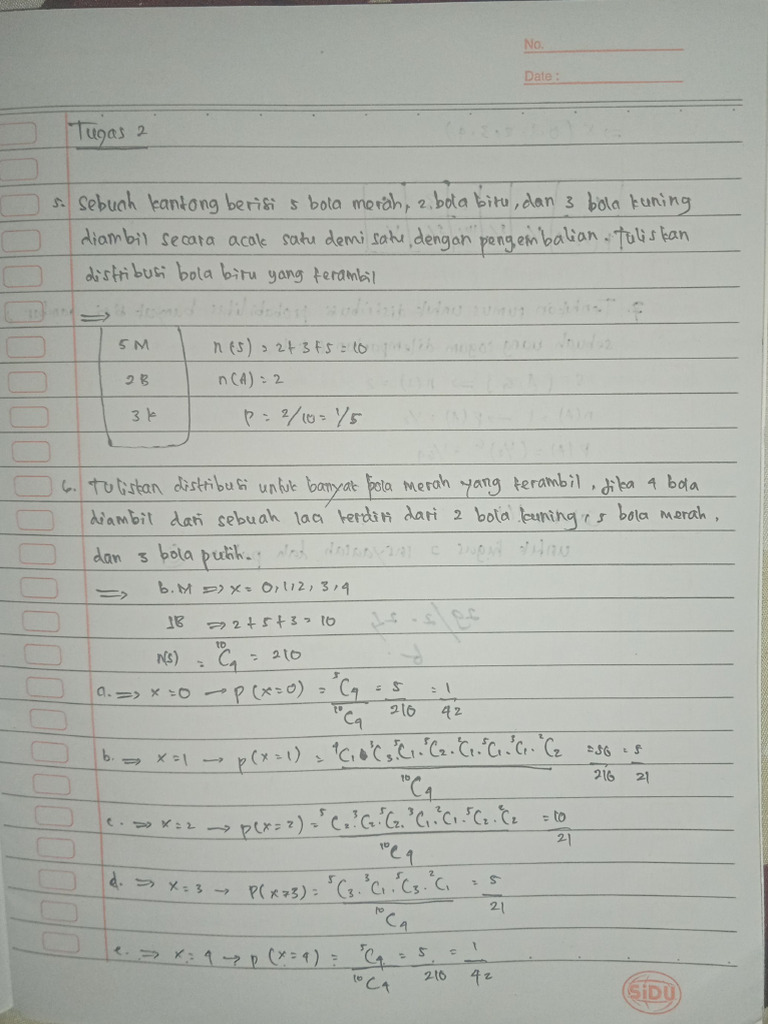 No.
Date :
Tugas 2
5. Sebuah kantong berisi 5 bola merah, 2 bola biru, dan 3 bola kuning
diambil secara acak satu demi satu, dengan pengembalian. Tuliskan
distribusi bola biru yang terambil
⇒
5 M n(S) = 2+3+5 = 10
2B n(A) = 2
3 k P = 2/10 = 1/5
6. Tuliskan distribusi untuk banyak bola merah yang terambil, jika 4 bola
diambil dari sebuah laci terdiri dari 2 bola kuning, 5 bola merah,
dan 3 bola putih.
⇒ b.M ⇒ x = 0,1,2,3,4
JB ⇒ 2+5+3 = 10
n(S) = ¹⁰C₄ = 210
a. ⇒ x = 0 → p(x=0) = ⁵C₄ / ¹⁰C₄ = 5/210 = 1/42
b. ⇒ x = 1 → p(x=1) = C₁ ³C₃ ⁵C₁ . ⁵C₂ . ²C₁ . ⁵C₁ . ³C₁ . ²C₂ / ¹⁰C₄ = 50/210 = 5/21
c. ⇒ x = 2 → p(x=2) = ⁵C₂ . ³C₂ . ⁵C₂ . ³C₁ . ²C₁ . ⁵C₂ . ²C₂ / ¹⁰C₄ = 10/21
d. ⇒ x = 3 → P(x=3) = ⁵C₃ . ³C₁ . ⁵C₃ . ²C₁ / ¹⁰C₄ = 5/21
e. ⇒ x = 4 → p(x=4) = ⁵C₄ / ¹⁰C₄ = 5/210 = 1/42
SiDU